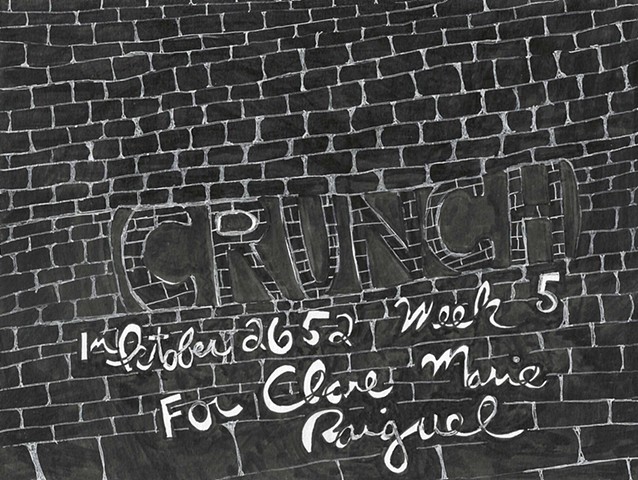 CRUNCH
Inktober 2652 Week 5
For Clare Marie
Raiguel